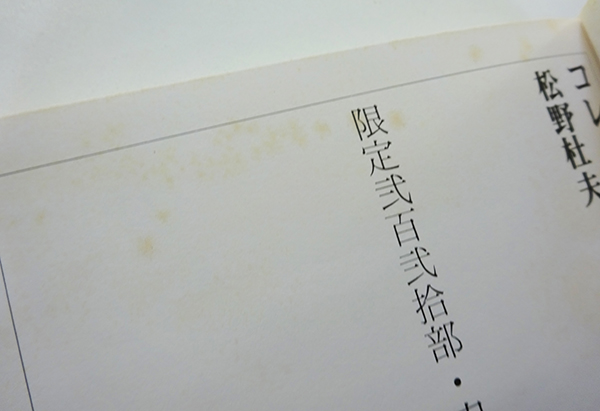 コレ
松野杜夫
限定弐百弐拾部・